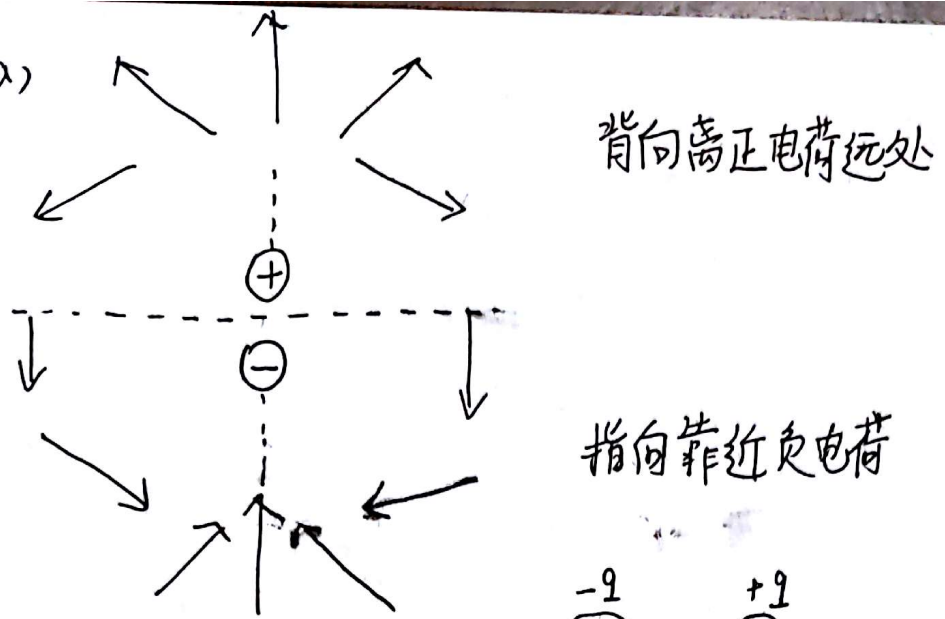 背向离正电荷远处
+
−
指向靠近负电荷
-q +q